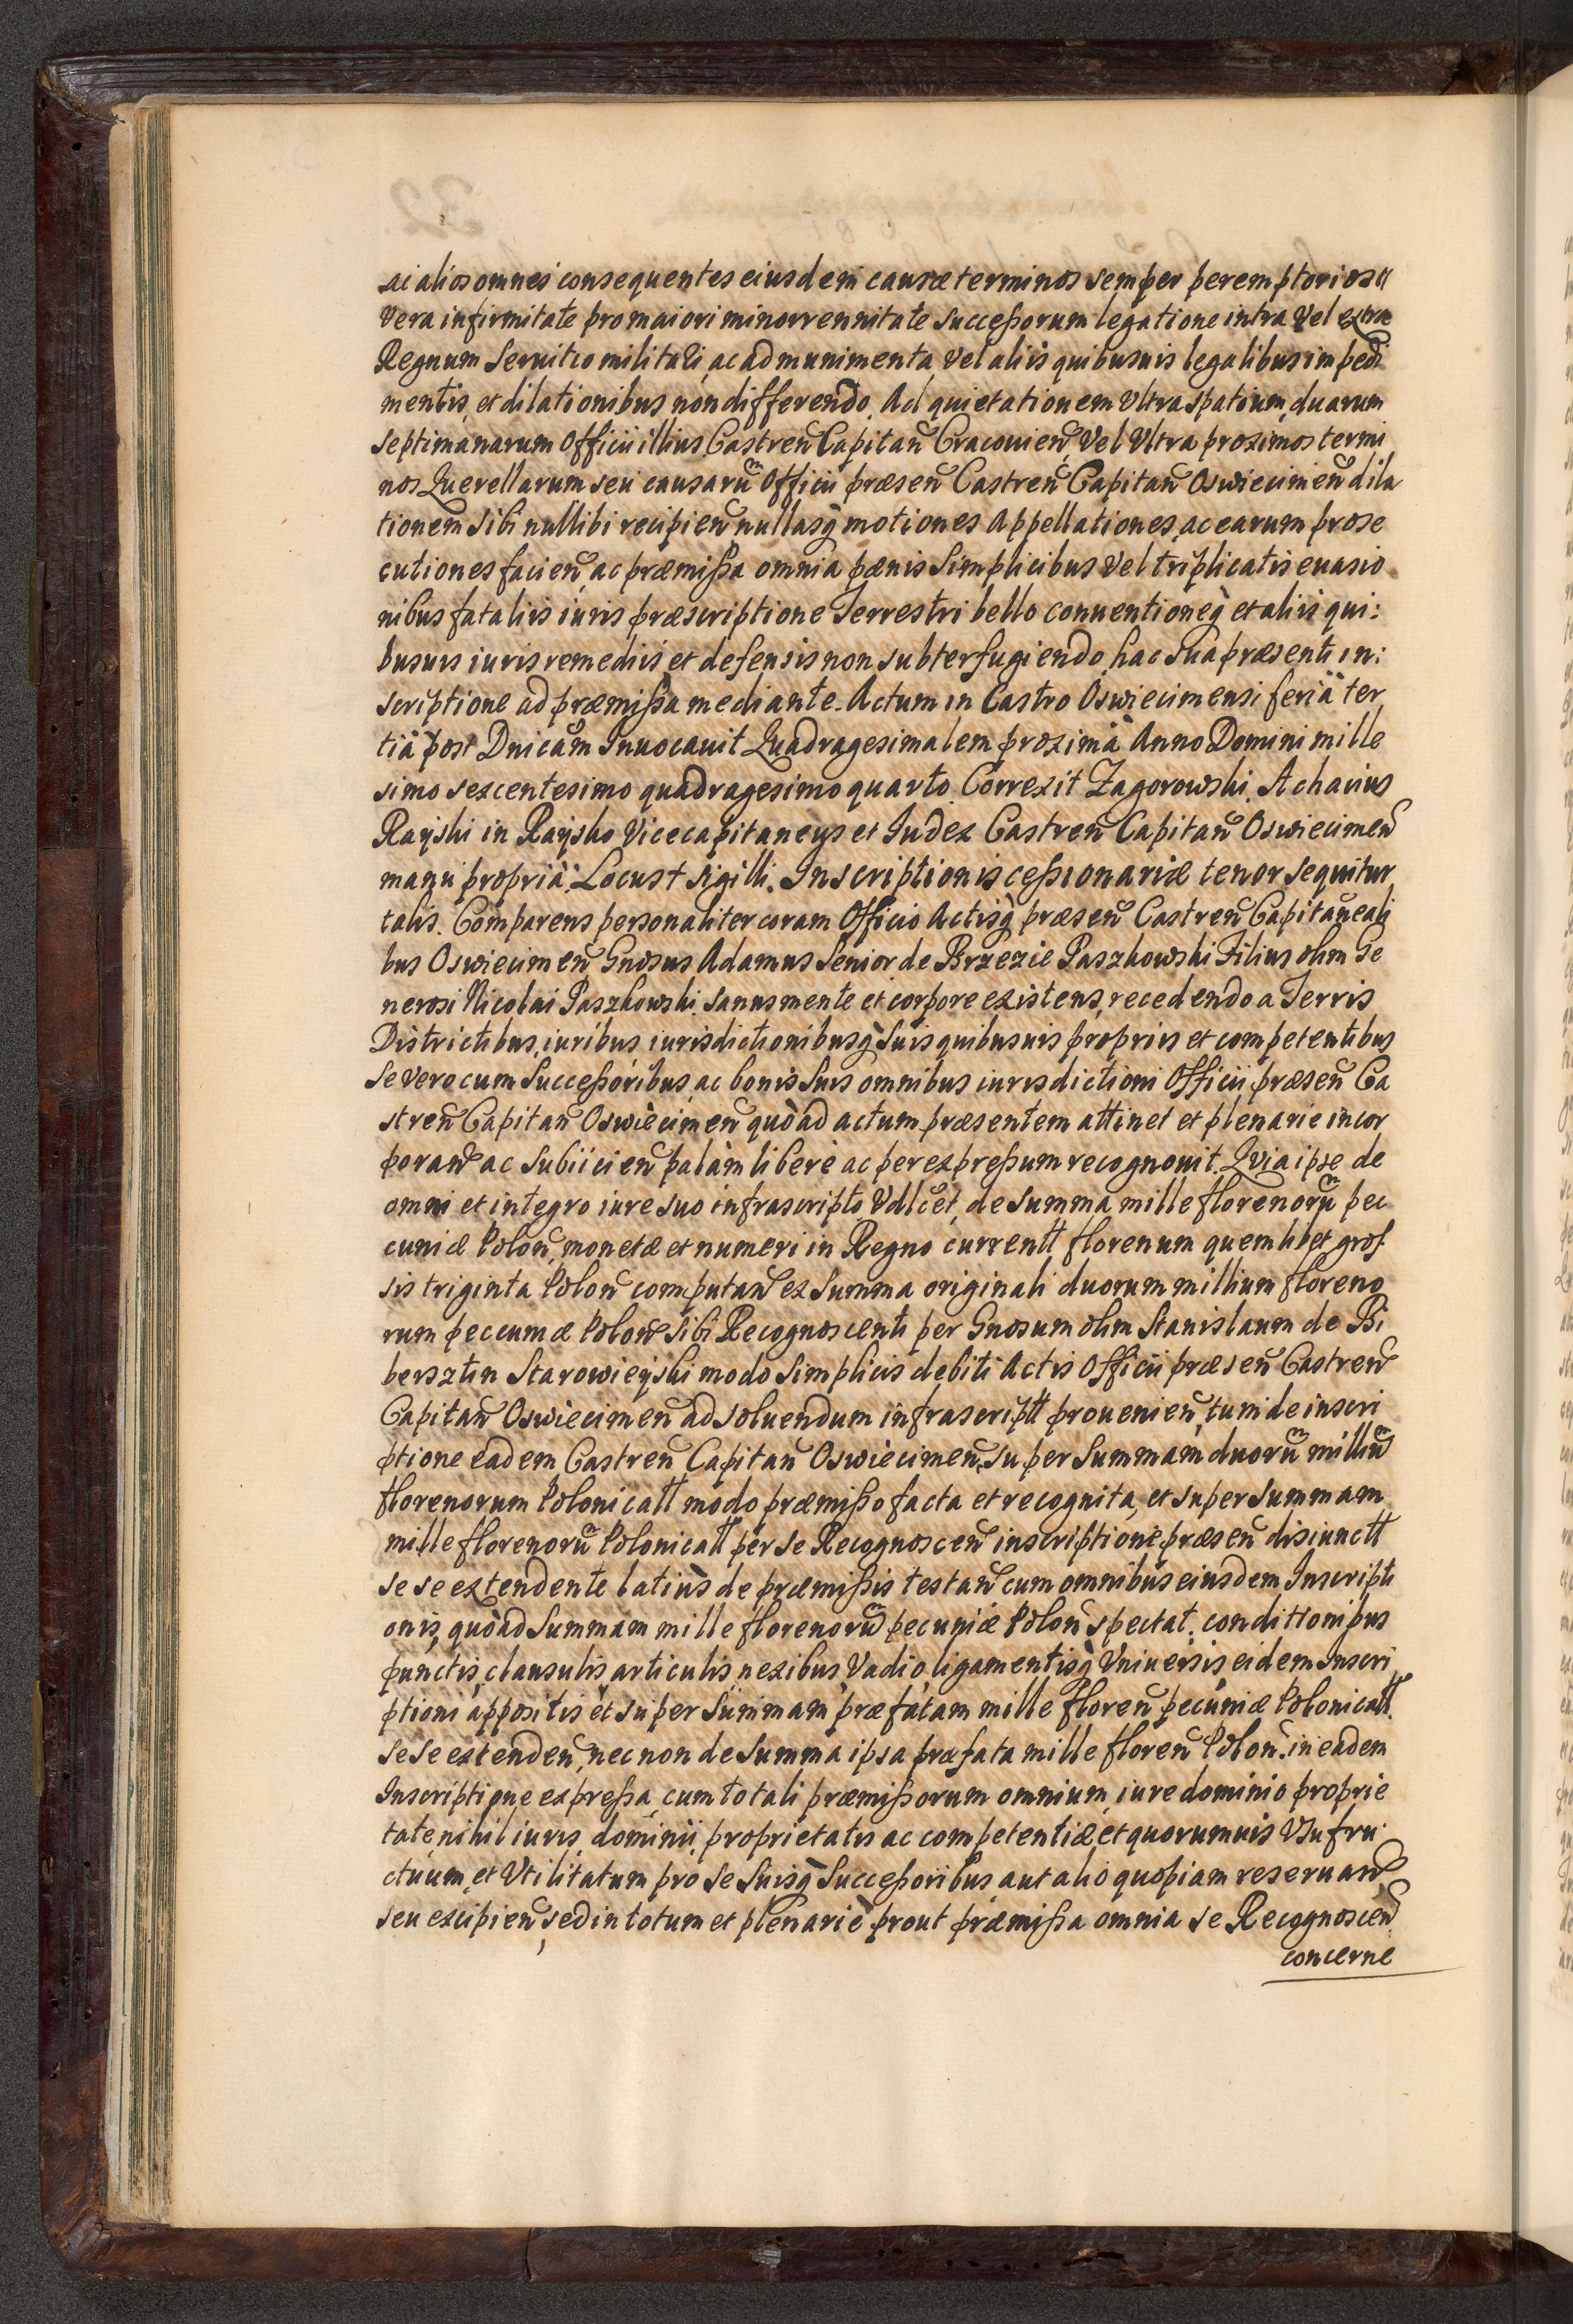 ac alios omnes consequentes eiusdem causæ terminos semper peremptorios a
Vera infirmitate pro maiori minorrennitate succeßorum legatione intra Vel extra
Regnum Seruitio militari, ac ad munimenta, Vel aliis quibusuis legalibus impedi
mentis, et dilationibus non differendo, Ad quietationem Vltra spatium, duarum
septimanarum Officii illius Castren̄ Capitan̄ Cracouien̄, Vel Vltra proximos termi
nos Querellarum seu causarū Officii præsen̄ Castren̄ Capitan̄ Oswiecimen̄ dila
tionem Sibi nullibi recipien̄, nullasq̀ motiones Appellationes, ac earum prose
cutiones facien̄, ac præmißa omnia pænis Simplicibus Vel triplicatis euasio
nibus fataliis iuris præscriptione Terrestri bello conuentioneq̀ et aliis qui:
busuis iuris remediis et defensis non subterfugiendo, hac Sua præsenti in:
scriptione ad præmißa mediante. Actum in Castro Oswiecimensi feria ter
tiä post Dnicam Inuocauit Quadragesimalem proximä Anno Domini mille
simo sexcentesimo quadragesimo quarto. Correxit Zagorowski. Achacius
Rayski in Raysko Vicecapitaneus et Iudex Castren̄ Capitan̄ Oswiecimen̄
manu propriä. Locus + sigilli. Inscriptionis ceßionariæ tenor sequitur
talis. Comparens personaliter coram Officio Actisq̀ præsen̄ Castren̄ Capitaneali
bus Oswiecimen̄ Gnosus Adamus Senior de Brzezie Paszkowski Filius olim Ge
nerosi Nicolai Paszkowski. sanus mente et corpore existens, recedendo a Terris
Districtibus, iuribus, iurisdictionibusq̀ Suis quibusuis propriis et competentibus
Se vero cum Succeßoribus, ac bonis Suis omnibus iurisdictioni Officii præsen̄ Ca
stren̄ Capitan̄ Oswiecimen̄ quò ad actum præsentem attinet et plenarie incor
poran̄ ac Subiicien̄ palàm liberè ac per expreßum recognouit. Quia ipse de
omni et integro iure suo infrascripto Vdlcet, de Summa mille florenorū pec
cuniæ Polon̄, monetæ et numeri in Regno currentt florenum quemlibet gros
sis triginta Polon̄ computan̄ ex Summa originali duorum millium floreno
rum peccuniæ Polon̄ Sibi Recognoscenti per Gnosum olim Stanislaum de Bi
bersztin Starowieyski modo Simplicis debiti Actis Officii præsen̄ Castren̄
Capitan̄ Oswiecimen̄ ad soluendum infrascriptt prouenien̄, tum de inscri
ptione eadem Castren̄ Capitan̄ Oswiecimen̄, super Summam duorū milliū
florenorum Polonicatt modo præmißo facta et recognita, et super summam
mille florenorū Polonicatt per se Recognoscen̄ inscriptione præsen̄ disiunctt
se se extendente latiùs de præmißis testan̄ cum omnibus eiusdem Inscripti
onis, quò ad Summam mille florenorū pecuniæ Polon̄ spectat, conditionibus
punctis, clausulis, articulis, nexibus, Vadio, ligamentisq̀ Vniuersis eidem Inscri
ptioni appositis et super Summam præfatam mille floren̄ pecuniæ Polonicatt
Se Se extenden̄, nec non de Summa ipsa præfata mille floren̄ Polon̄. in eadem
Inscriptione expreßa, cum totali præmißorum omnium, iure dominio proprie
tate nihil iuris, dominii, proprietatis ac competentiæ et quorumuis Vsufru
ctuum, et Vtilitatum pro Se Suisq̀ Succeßoribus, aut alio quopiam reseruan̄
seu excipien̄, sed in totum et plenariè prout præmißa omnia se Recognoscen̄
concerne